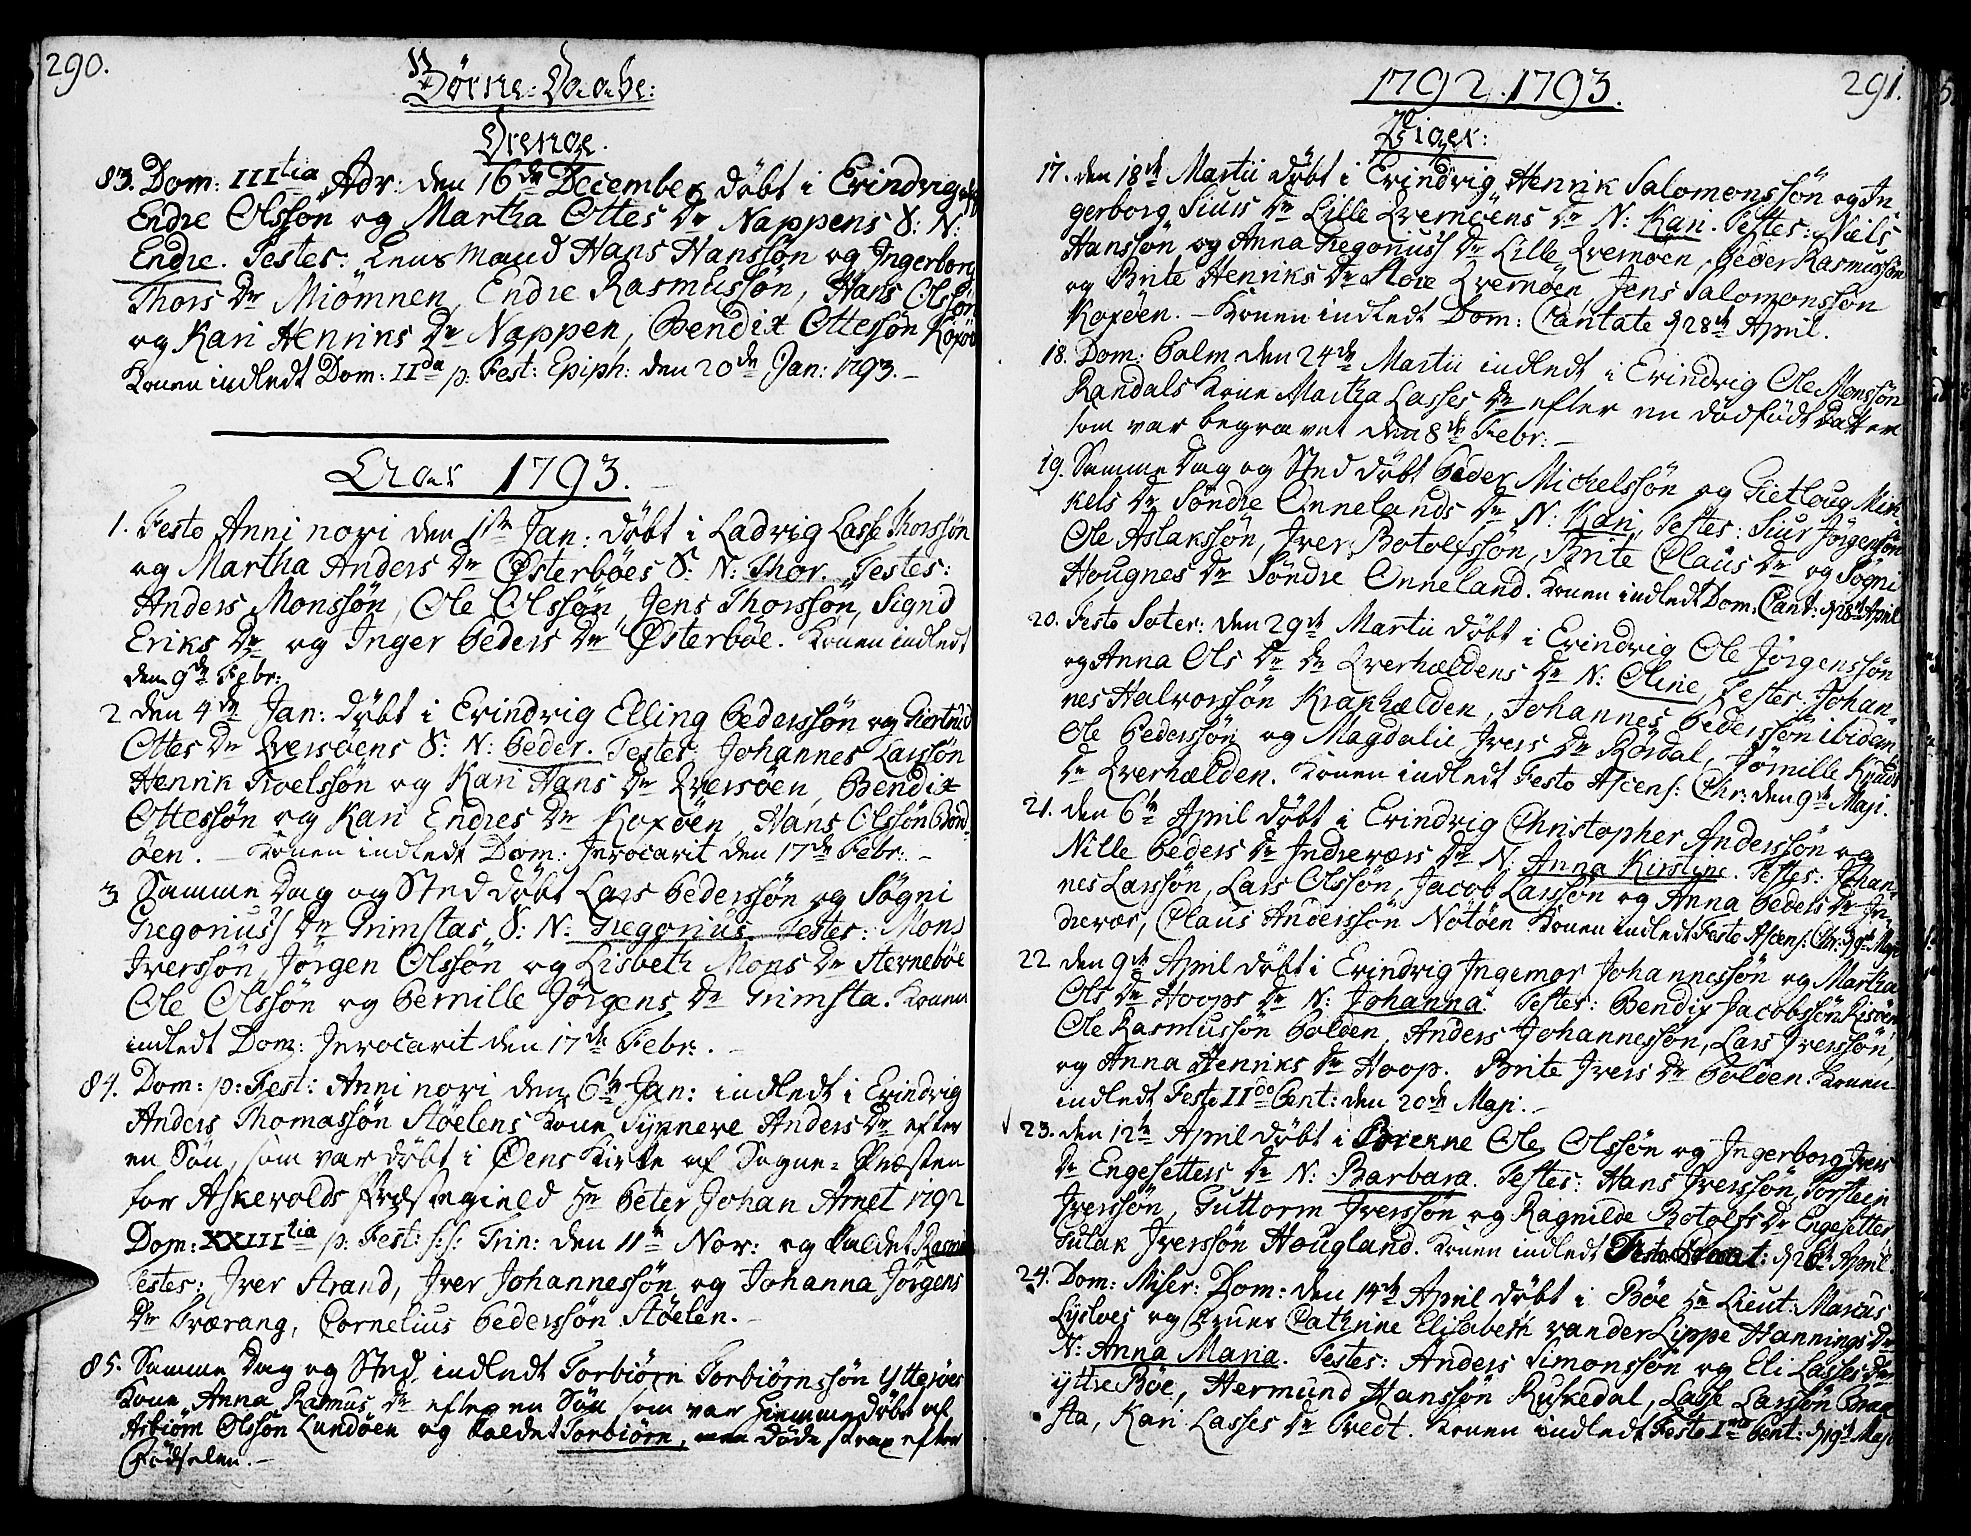 290.
Børne-Daabe:
Drenge.
83. Dom: IIItia Adv: den 16de December døbt i Evindvig
Endre Olssøn og Martha Ottes Dr Nappens S: N:
Endre. Testes: Lensmand Hans Hanssøn og Ingerborg
Thors Dr Miømnen, Endre Rasmussøn, Hans Olssøn
og Kari Henriks Dr Nappen, Bendix Ottessøn Koxøe
Konen indledt Dom: IIda p: Fest: Epiph: den 20de Jan: 1793.
1793.
1. Festo Anni novi den 1ste Jan: døbt i Ladvig Lasse Thorssøn
og Martha Anders Dr Østerbøes S: N: Thor. Testes:
Anders Monssøn, Ole Olssøn, Jens Thorssøn, Signd
Eriks Dr og Inger Peders Dr Østerbøe. Konen indledt
den 9de Febr:
2 den 4de Jan: døbt i Evindvig Elling Pederssøn og Giertrud
Ottes Dr Qversøens S: N: Peder. Testes: Johannes Larssøn
Henrik Troelssøn og Kari Hans Dr Qversøen, Bendix
Ottessøn og Kari Endres Dr Koxøen, Hans Olssøn Bond-
øen. – Konen indledt Dom: Invocavit den 17de Febr: –
3 Samme Dag og Sted døbt Lars Pederssøn og Søgni
Gregoriuss Dr Grimstas S: N: Gregorius Testes: Mons
Iverssøn, Jørgen Olssøn og Lisbeth Mons Dr Sternebøe
Ole Olssøn og Pernille Jørgens Dr Grimsta. Konen
indledt Dom: Invocavit den 17de Febr. –
84. Dom: p: Fest: Anni novi den 6te Jan: indledt i Evindvig
Anders Thomassøn Støelens Kone Synneve Anders Dr efter
en Søn, som var døbt i Øens Kirke af Sogne-Præsten
for Askevolds Præstegield Hr Peter Johan Arnet 1792
Dom: XXIIItia p: Fest: s:s: Trin: den 11te Nov: og kaldet Rasmus
Testes: Iver Strand, Iver Johannessøn og Johanna Jørgens
Dr Trærang, Cornelius Pederssøn Støelen. –
85. Samme Dag og Sted indledt Torbiørn Torbiørnssøn Yttrøes
Kone Anna Rasmus Dr efter en Søn som var hiemmedøbt af
Asbiørn Olssøn Lundøen og kaldet Torbiørn, men døde strax efter
Fødselen. –
1792. 1793.
291.
Piger:
17. den 18de Martii døbt i Evindvig Henrik Salomonssøn og In-
gerborg Siurs Dr Lille Qvernøens Dr N: Kari. Testes: Niels
Hanssøn og Anna Gregoriuss Dr Lille Qvernøen, Peder Rasmussøn
og Brite Henriks Dr Store Qvernøen, Jens Salomonssøn
Koxøen. – Konen indledt Dom: Cantate d 28de April.
18. Dom: Palm den 24de Martii indledt i Evindvig Ole Monssøn
Randals Kone Martha Lasses Dr efter en dødfødt Datter
som var begravet den 8de Febr: –
19. Samme Dag og Sted døbt Peder Michelssøn og Gietloug Mik-
kels Dr Søndre Onnelands Dr N: Kari, Testes: Siur Jørgenssøn
Ole Aslakssøn, Iver Botolfssøn, Brite Olaus Dr og Søgni
Hougnes Dr Søndre Onneland. Konen indledt Dom: Cant: d 28de April
20. Festo Sater: den 29de Martii døbt i Evindvig Ole Jørgenssøn
og Anna Ols Dr Qverhældens Dr N: Oline, Testes: Johan-
nes Halvorssøn Krakhælden, Johannes Pederssøn ibidem
Ole Pederssøn og Magdali Ivers Dr Rørdal, Jørnille Knuds
Dr Qverhælden. Konen indledt Festo Ascens: Chr: den 9de Maji.
21. den 6te April døbt i Evindvig Christopher Anderssøn og
Nille Peders Dr Indreværs Dr N: Anna Kirstine. Testes: Johan-
nes Larssøn, Lars Olssøn, Jacob Larssøn og Anna Peders Dr In-
drevær, Claus Anderssøn Notøen Konen indledt Festo Ascens: Chr: d 9de Maji
22 den 9de April døbt i Evindvig Ingemor Johannessøn og Martha
Ols Dr Hoops Dr N: Johanna. Testes: Bendix Jacobssøn Risøen
Ole Rasmussøn Polden, Anders Johannessøn, Lars Iverssøn,
og Anna Henriks Dr Hoop. Brite Ivers Dr Polden. Konen
indledt Festo IIdo Pent: den 20de Maji. –
23. den 12te April døbt i Brekke Ole Olssøn og Ingerborg Ivers
Dr Engesetters Dr N: Barbara. Testes: Hans Iverssøn, Torstein
Iverssøn, Guttorm Iverssøn og Ragnilde Botolfs Dr Engesetter,
Iverssøn Hougland. Konen indledt d 26de April.
24. Dom: Miser: Dom: den 14de April døbt i Bøe Hr Lieut: Marcus
Lysloes og Frues Cathrine Elisabeth van der Lippe Hannings Dr
N: Anna Maria. Testes: Anders Simonssøn og Eli Lasses Dr
yttre Bøe, Hermund Hanssøn Ruskedal, Lasse Larssøn Brae
sta, Kari Lasses Dr Tredt. Konen indledt Festo Imo Pent: d 19de Maji